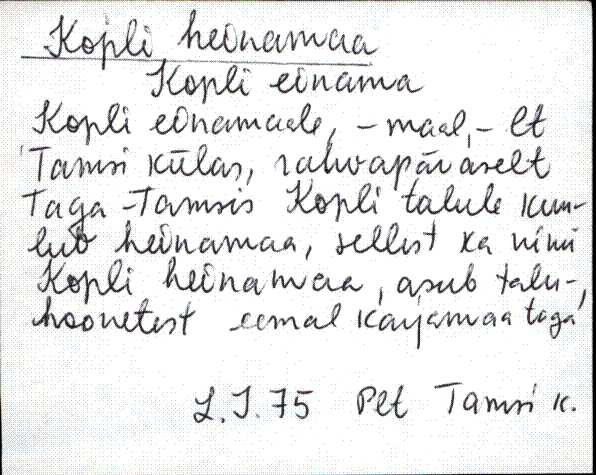 Kopli heinamaa
Kopli einama
Kopli einamaale, -maal, -lt
Tamsi külas, rahvapäraselt
Taga-Tamsis Kopli talule kuu-
lub heinamaa, sellest ka nimi
Kopli heinamaa, asub talu-,
hoonetest eemal karjamaa taga
L.J. 75 Plt Tamsi k.